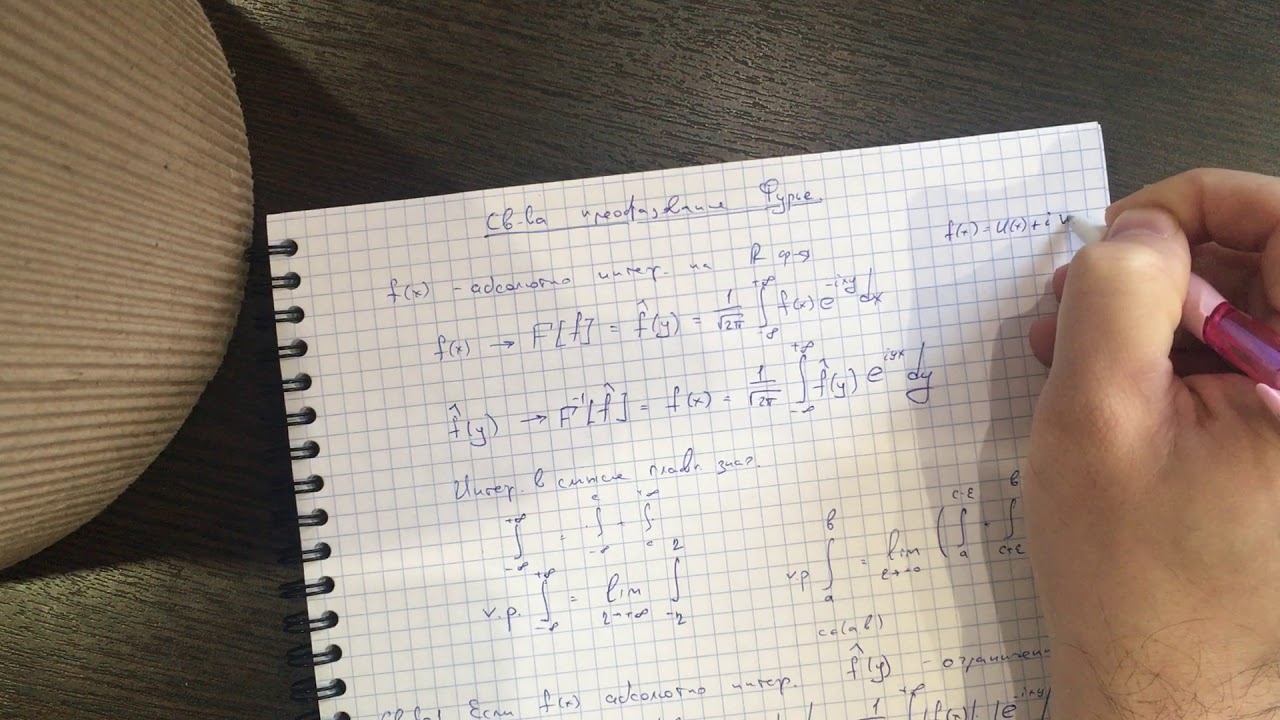 Св-ва преобразования Фурье.
f(x) = u(x) + i v
f(x) - абсолютно интегр. на R ф-я
f(x) → F[f] = f̂(y) = 1/√2π ∫_{-∞}^{+∞} f(x) e^{-ixy} dx
f̂(y) → F^{-1}[f̂] = f(x) = 1/√2π ∫_{-∞}^{+∞} f̂(y) e^{iyx} dy
Интегр. в смысле главн. знач.
∫_{-∞}^{+∞} = ∫_{-∞}^{c} + ∫_{c}^{+∞}
v.p. ∫_{-∞}^{+∞} = lim_{η→+∞} ∫_{-η}^{η}
v.p. ∫_{a}^{b} = lim_{ε→+0} ( ∫_{a}^{c-ε} + ∫_{c+ε}^{b}
c∈(a b)
Св-во1 Если f(x) абсолютно интегр. f̂(y) - ограничен
1 ∫^{+∞} |f(x)| · |e^{-ixy}|